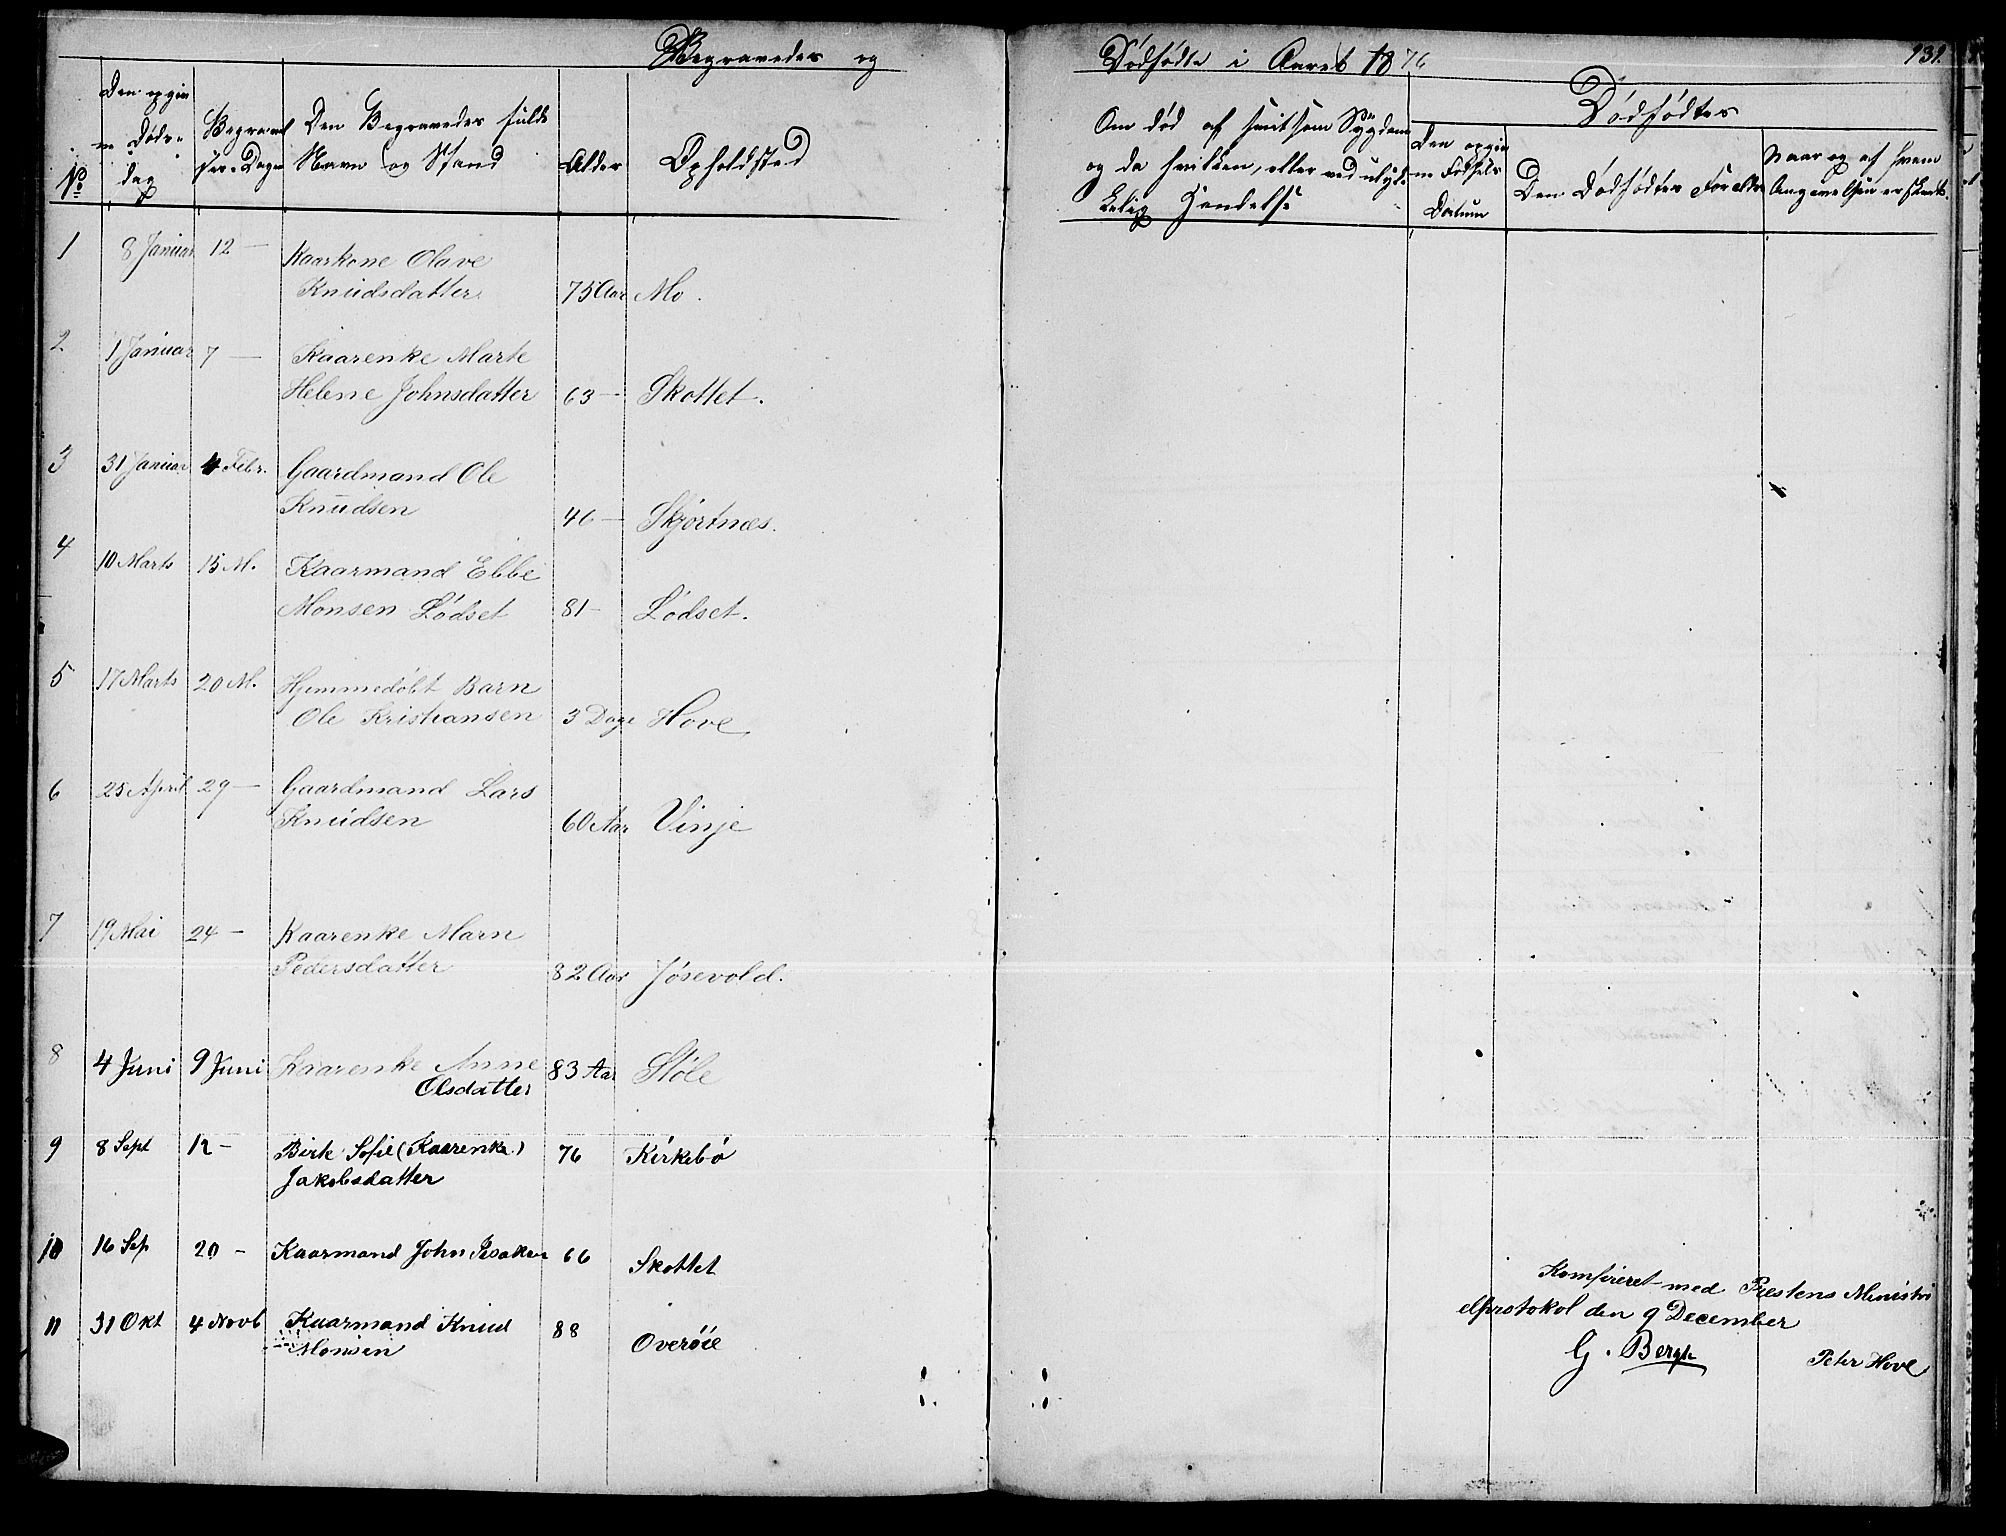 Begravedes og
Dödfödte i Aaret 1876
131.
No
Den opgivne Döds-dag
Begravelses-Dagen
Den Begravedes fulde Navn og Stand
Alder
Opholdsted
Om död af smitsom Sygdom
og da hvilken, eller ved ulyk-
kelig Hændelse
Dödfödtes
Den opgivne Födsels Datum
Den Dödfödtes Forældre
Naar og af hvem Angivelsen er skeet.
1 8 Januar 12 — Kaarkone Olave
Knudsdatter. 75 Aar Mo.
2 1 Januar 7 — Kaarenke Marte
Helene Johnsdatter 63 — Skottet.
3 31 Januar 4 Febr. Gaardmand Ole
Knudsen 46 — Skjortnæs.
4 10 Marts 15 M. Kaarmand Ebbe
Monsen Lödset 81 — Lödset.
5 17 Marts 20 M. Hjemmedöbt Barn
Ole Kristiansen 3 Dage Hove
6 25 April 29 — Gaardmand Lars
Knudsen 60 Aar Vinje
7 19 Mai 24 — Kaarenke Marn
Pedersdatter 82 Aar Jösevold.
8 4 Juni 9 Juni Kaarenke Anne
Olsdatter 83 Aar Stöle
9 8 Sept 12 — Birte Sofie (Kaarenke)
Jakobsdatter 76 Kirkebö
10 16 Sep 20 — Kaarmand John Isaksen 66 Skottet
11 31 Okt 4 Novb Kaarmand Knud
Monsen 88 Overöie
Komfireret med Prestens Ministri
elprotokol den 9 December
G. Bergh
Peter Hove